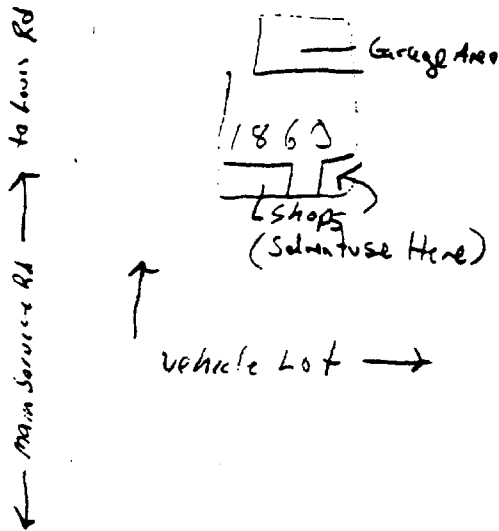 Garage Area
1860
Shops
(Solvent use Here)
Vehicle Lot
Main Service Rd
to Louis Rd